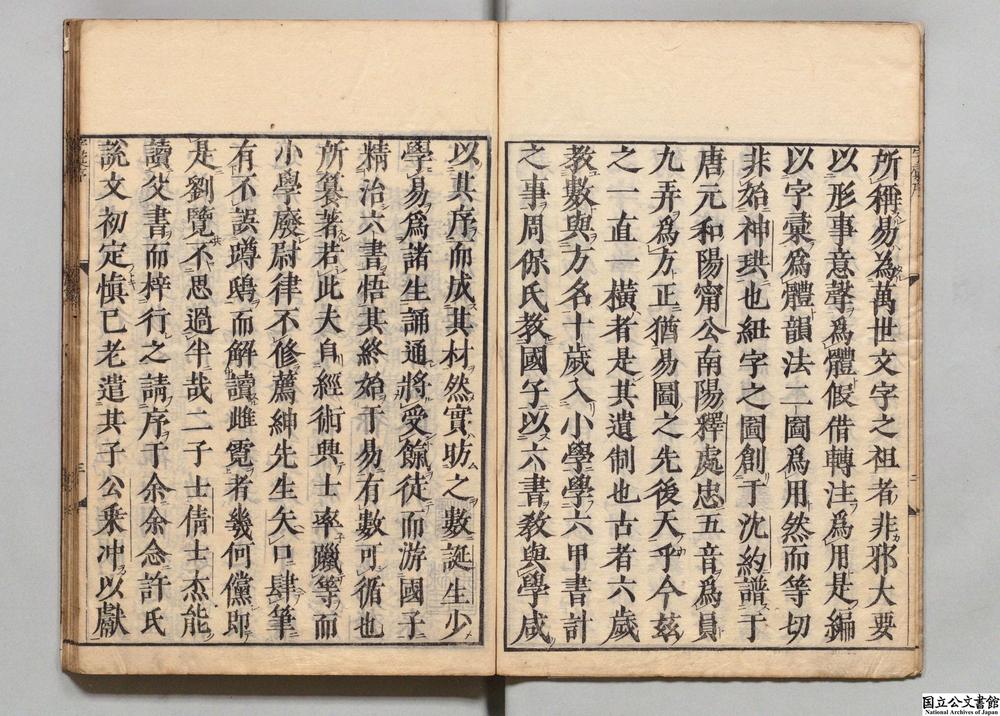 所稱易為萬世文字之祖者非邪大要
以形事意聲為體假借轉注為用是編
以字彙為體韻法二圖為用然而等切
非始神珙也紐字之圖創于沈約譜于
唐元和陽甯公南陽釋處忠五音為員
九弄為方正猶易圖之先後天乎今茲
之一直一橫者是其遺制也古者六歲
教數與方名十歲入小學學六甲書計
之事周保氏教國子以六書教與學咸
以其序而成其材然實昉之數誕生少
學易為諸生誦通將受餼徒而游國子
精治六書悟其終始于易有數可循也
所篹著若此夫自經術興士率躐等而
小學廢尉律不修薦紳先生矢口肆筆
有不誤蹲鴟而解讀雌霓者幾何儻即
是劉覽不思過半哉二子士倩士杰能
讀父書而梓行之請序于余余念許氏
說文初定慎巳老遣其子公乘冲以獻
国立公文書館
National Archives of Japan